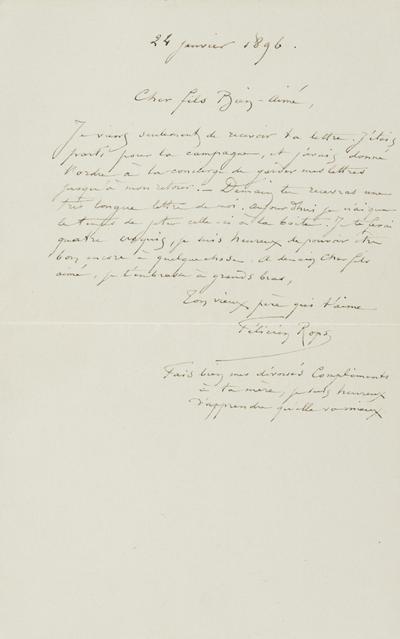 24 janvier 1896.
Cher fils Bien-Aimé,
Je viens seulement de recevoir ta lettre. J'étais
parti pour la campagne, et j'avais donné
l'ordre à la concierge de garder mes lettres
jusqu'à mon retour. — Demain tu recevras une
très longue lettre de moi. Aujourd'hui je n'ai que
le temps de jeter celle-ci à la boîte. Je te ferai
quatre croquis, je suis heureux de pouvoir être
bon encore à quelque chose. A demain Cher fils
aimé, je t'embrasse à grands bras,
Ton vieux père qui t'aime
Félicien Rops
Fais bien mes dévoués Compliments
à ta mère, je suis heureux
d'apprendre qu'elle va mieux